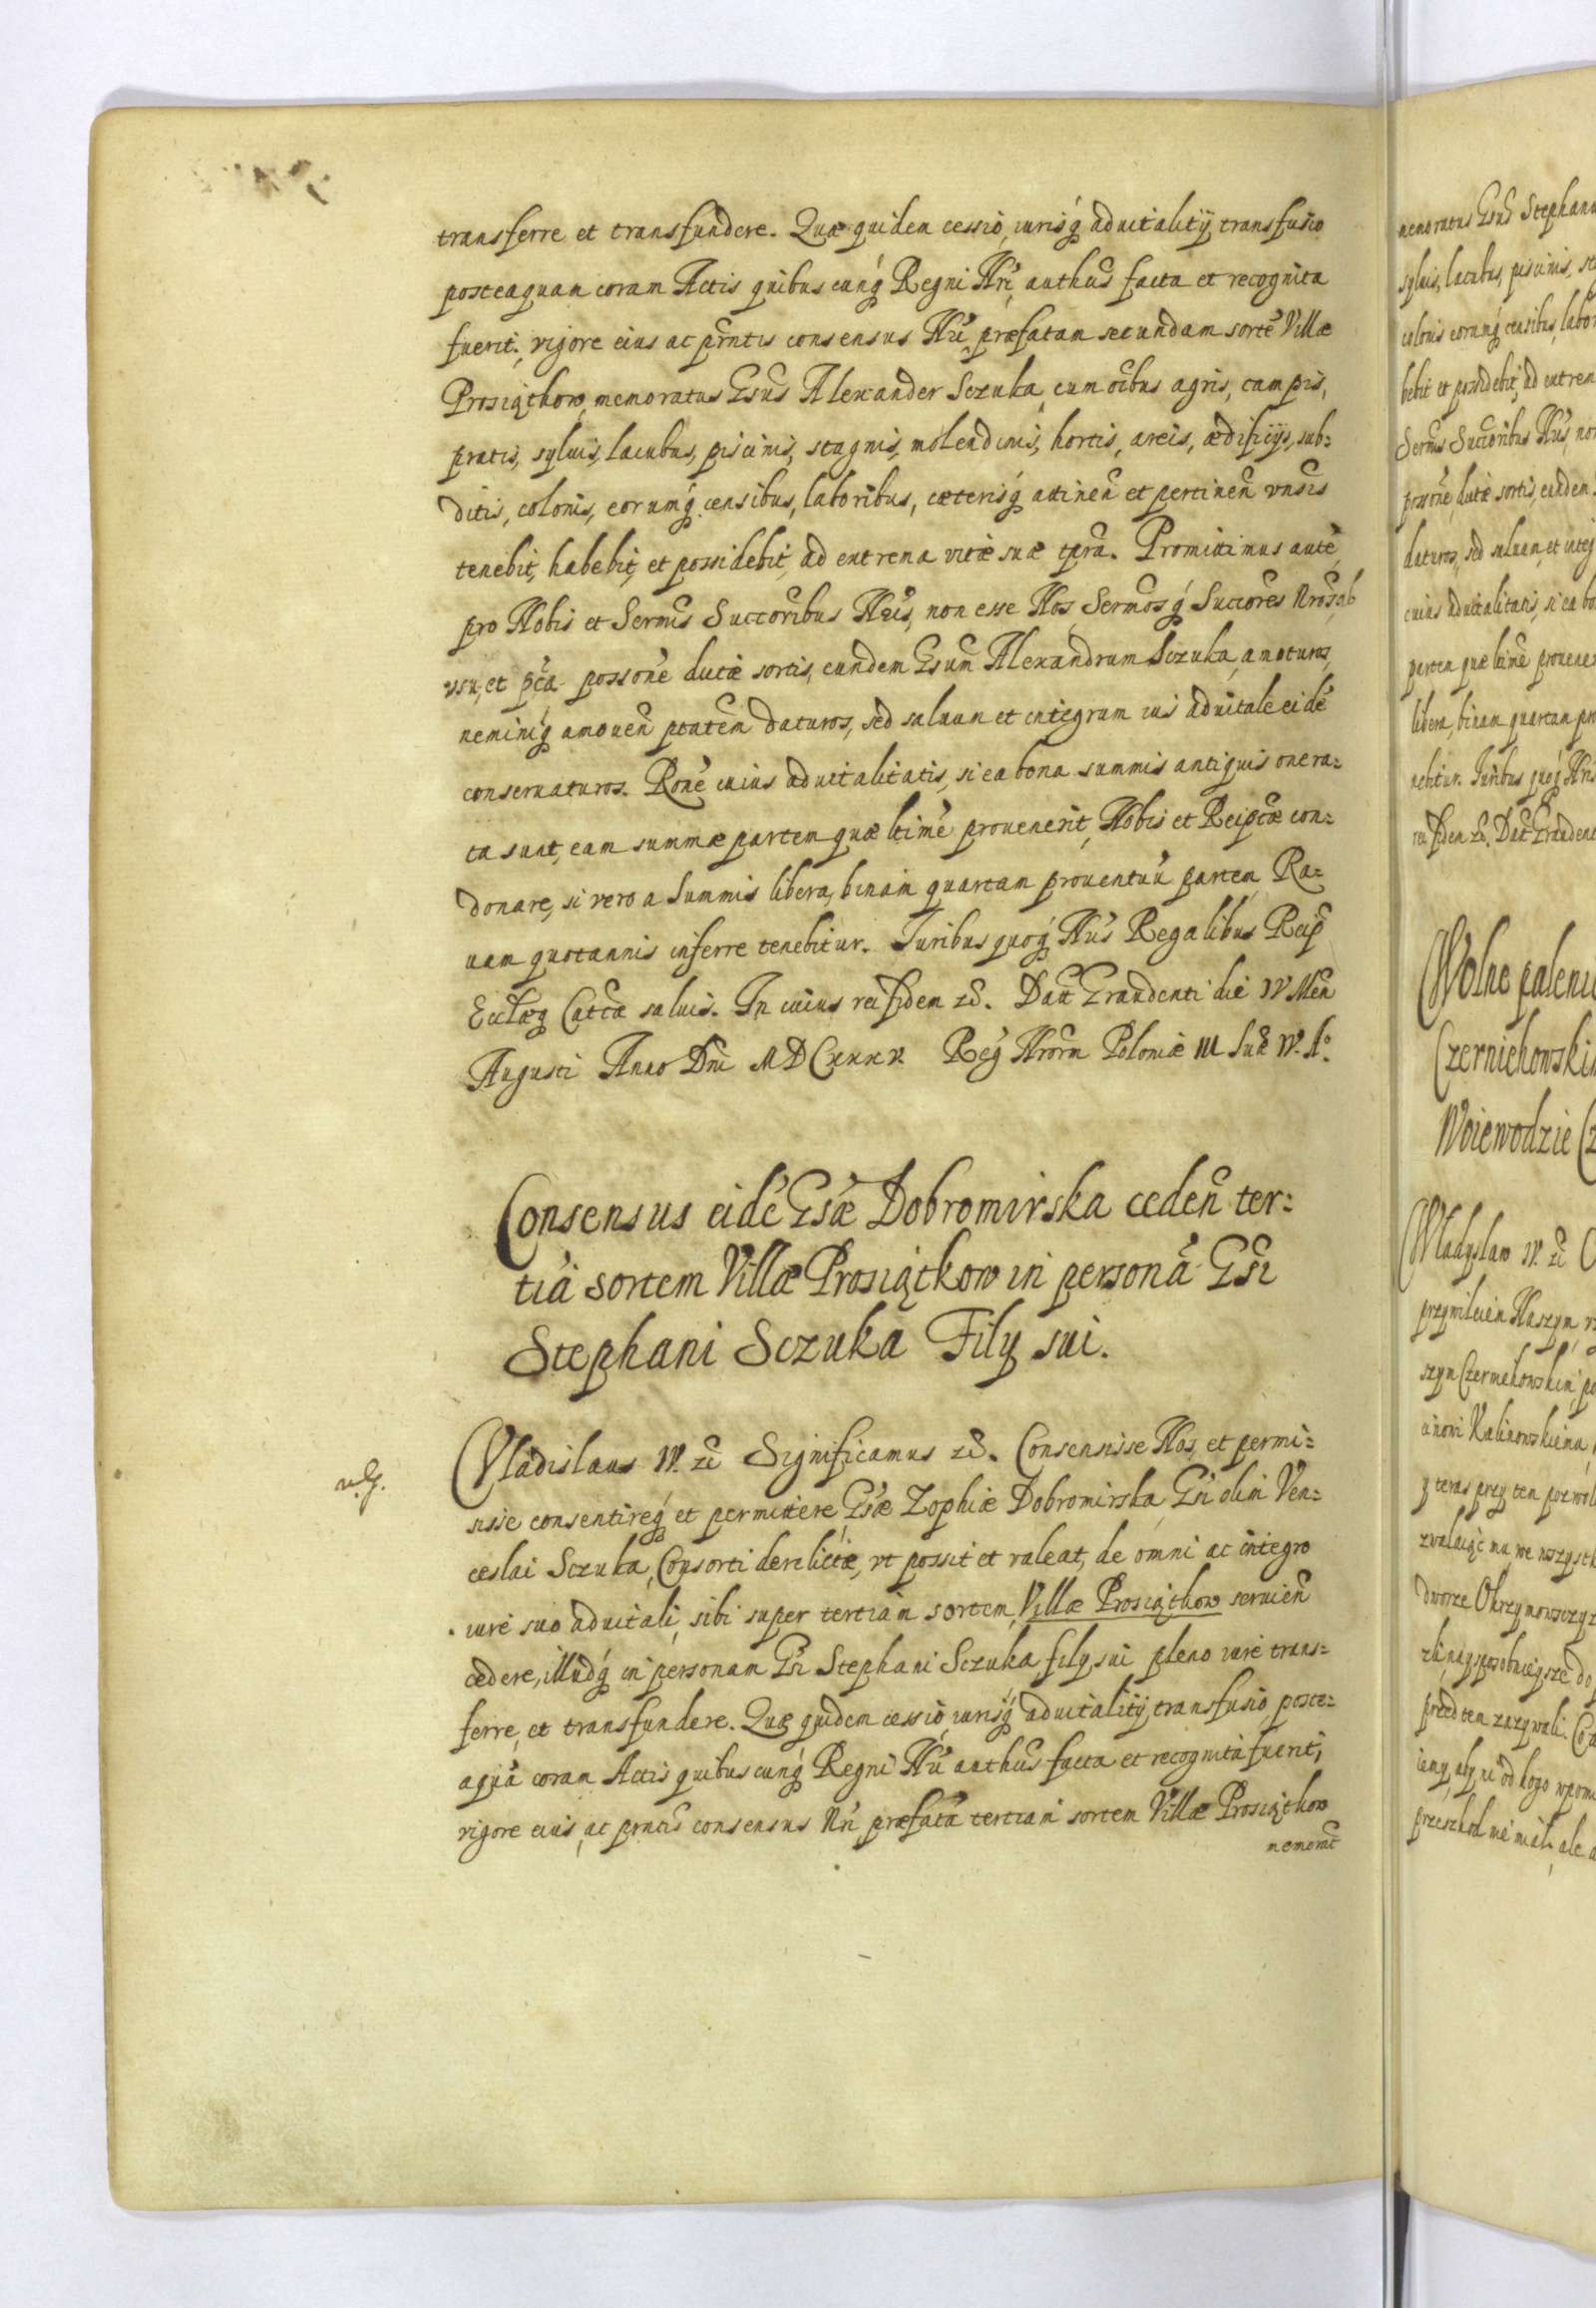 transferre et transfundere. Quæ quidem cessio, iurisq́ aduitalitÿ transfusio
posteaquam coram Actis quibuscunq́ Regni Nr̃i, authẽs facta et recognita
fuerit, vigore eius ac pr̃ntis consensus Nr̃i, præfatam secundam sortẽ Villæ
Prosiątkow, memoratus Gs̃us Alexander Sczuka, cum oĩbus agris, campis,
pratis, syluis, lacubus, piscinis, stagnis, molendinis, hortis, areis, ædificijs, sub:
ditis, colonis, eorumq́ censibus, laboribus, cæterisq́ attineñ et pertineñ vnṽsis
tenebit, habebit, et possidebit, ad extrema vitæ suæ tp̃ra. Promittimus autẽ,
pro Nobis et Serm̃is Succoribus Nr̃is, non esse Nos, Serm̃osq́ Succores Nr̃os, ab
vsu, et pc̃a possoñe dictæ sortis, eundem Gs̃um Alexandrum Sczuka, amoturos,
neminiq́ amoueñ ptãtem daturos, sed saluum et integrum ius aduitale eidẽ
conseruaturos. Roñe cuius aduitalitatis, si ea bona summis antiquis onera:
ta sunt, eam summæ partem quæ ltimẽ prouenerit, Nobis et Reipc̃æ con:
donare, si vero a summis libera, binam quartam prouentuũ partem, Ra:
uam quotannis inferre tenebitur. Iuribus quoq́ Nr̃is Regalibus Reip̃
Ecclæq́ Catcæ saluis. In cuius rei fidem etc̃. Datt Graudenti die IV Meñ
Augusti Anno Dñi MDCXXXV. Reg̃ Nror̃m Poloniæ III Sue͠ IV. Aᵒ.
Consensus eidẽ Gs̃æ Dobromirska cedeñ ter:
tiã sortem Villæ Prosiątkow in personã Gs̃i
Stephani Sczuka Filÿ sui.
Vladislaus IV. etc̃ Significamus etc̃. Consensisse Nos, et permi:
sisse consentireq́ et permittere Gs̃æ Zophiæ Dobromirska, Gs̃i olim Ven:
ceslai Sczuka, Consorti derelictæ, vt possit et valeat, de omni ac integro
iure suo aduitali, sibi super tertiam sortem Villæ Prosiątkow seruieñ
cedere, illudq́ in personam Gs̃i Stephani Sczuka filÿ sui pleno iure trans:
ferre, et transfundere. Quæ quidem cessio, iurisq́ aduitalitÿ transfusio, poste:
aquã coram Actis quibuscunq́ Regni Nr̃i authẽs facta et recognita fuerit,
vigore eius, ac pr̃ntis consensus Nr̃i præfatã tertiam sortem Villæ Prosiątkow
memorat̃
memoratus Gs̃us Stephanu
syluis, lacubus, piscinis, st
colonis eorumq́ censibus, labor
bebit et possidebit, ad extrem
Serm̃is Succoribus Nr̃is, non
possoñe dictæ sortis, eundem
daturos, sed saluum, et integ
cuius aduitalitatis, si ea bo
partem quæ ltimẽ prouener
libera, binam quartam pro
nebitur. Iuribus quoq́ Nr̃is
rei fidem etc̃. Datt Graudent
Wolne paleni
Czerniehowski
Woiewodzie C
Wladyslaw IV. etc̃